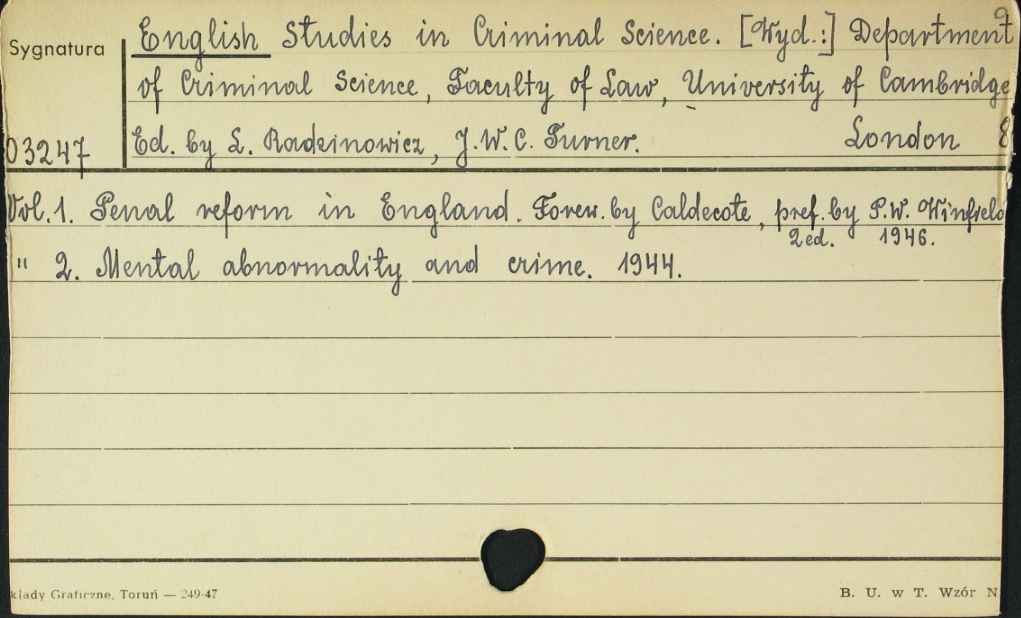 Sygnatura
English Studies in Criminal Science. [Wyd.:] Department
of Criminal Science, Faculty of Law, University of Cambridge
03247
Ed. by L. Radzinowicz, J.W.C. Turner. London
Vol. 1. Penal reform in England. Forew. by Caldecote, pref. by P.W. Winfield
2 ed. 1946.
" 2. Mental abnormality and crime. 1944.
kłady Graficzne, Toruń — 249-47
B. U. w T. Wzór N